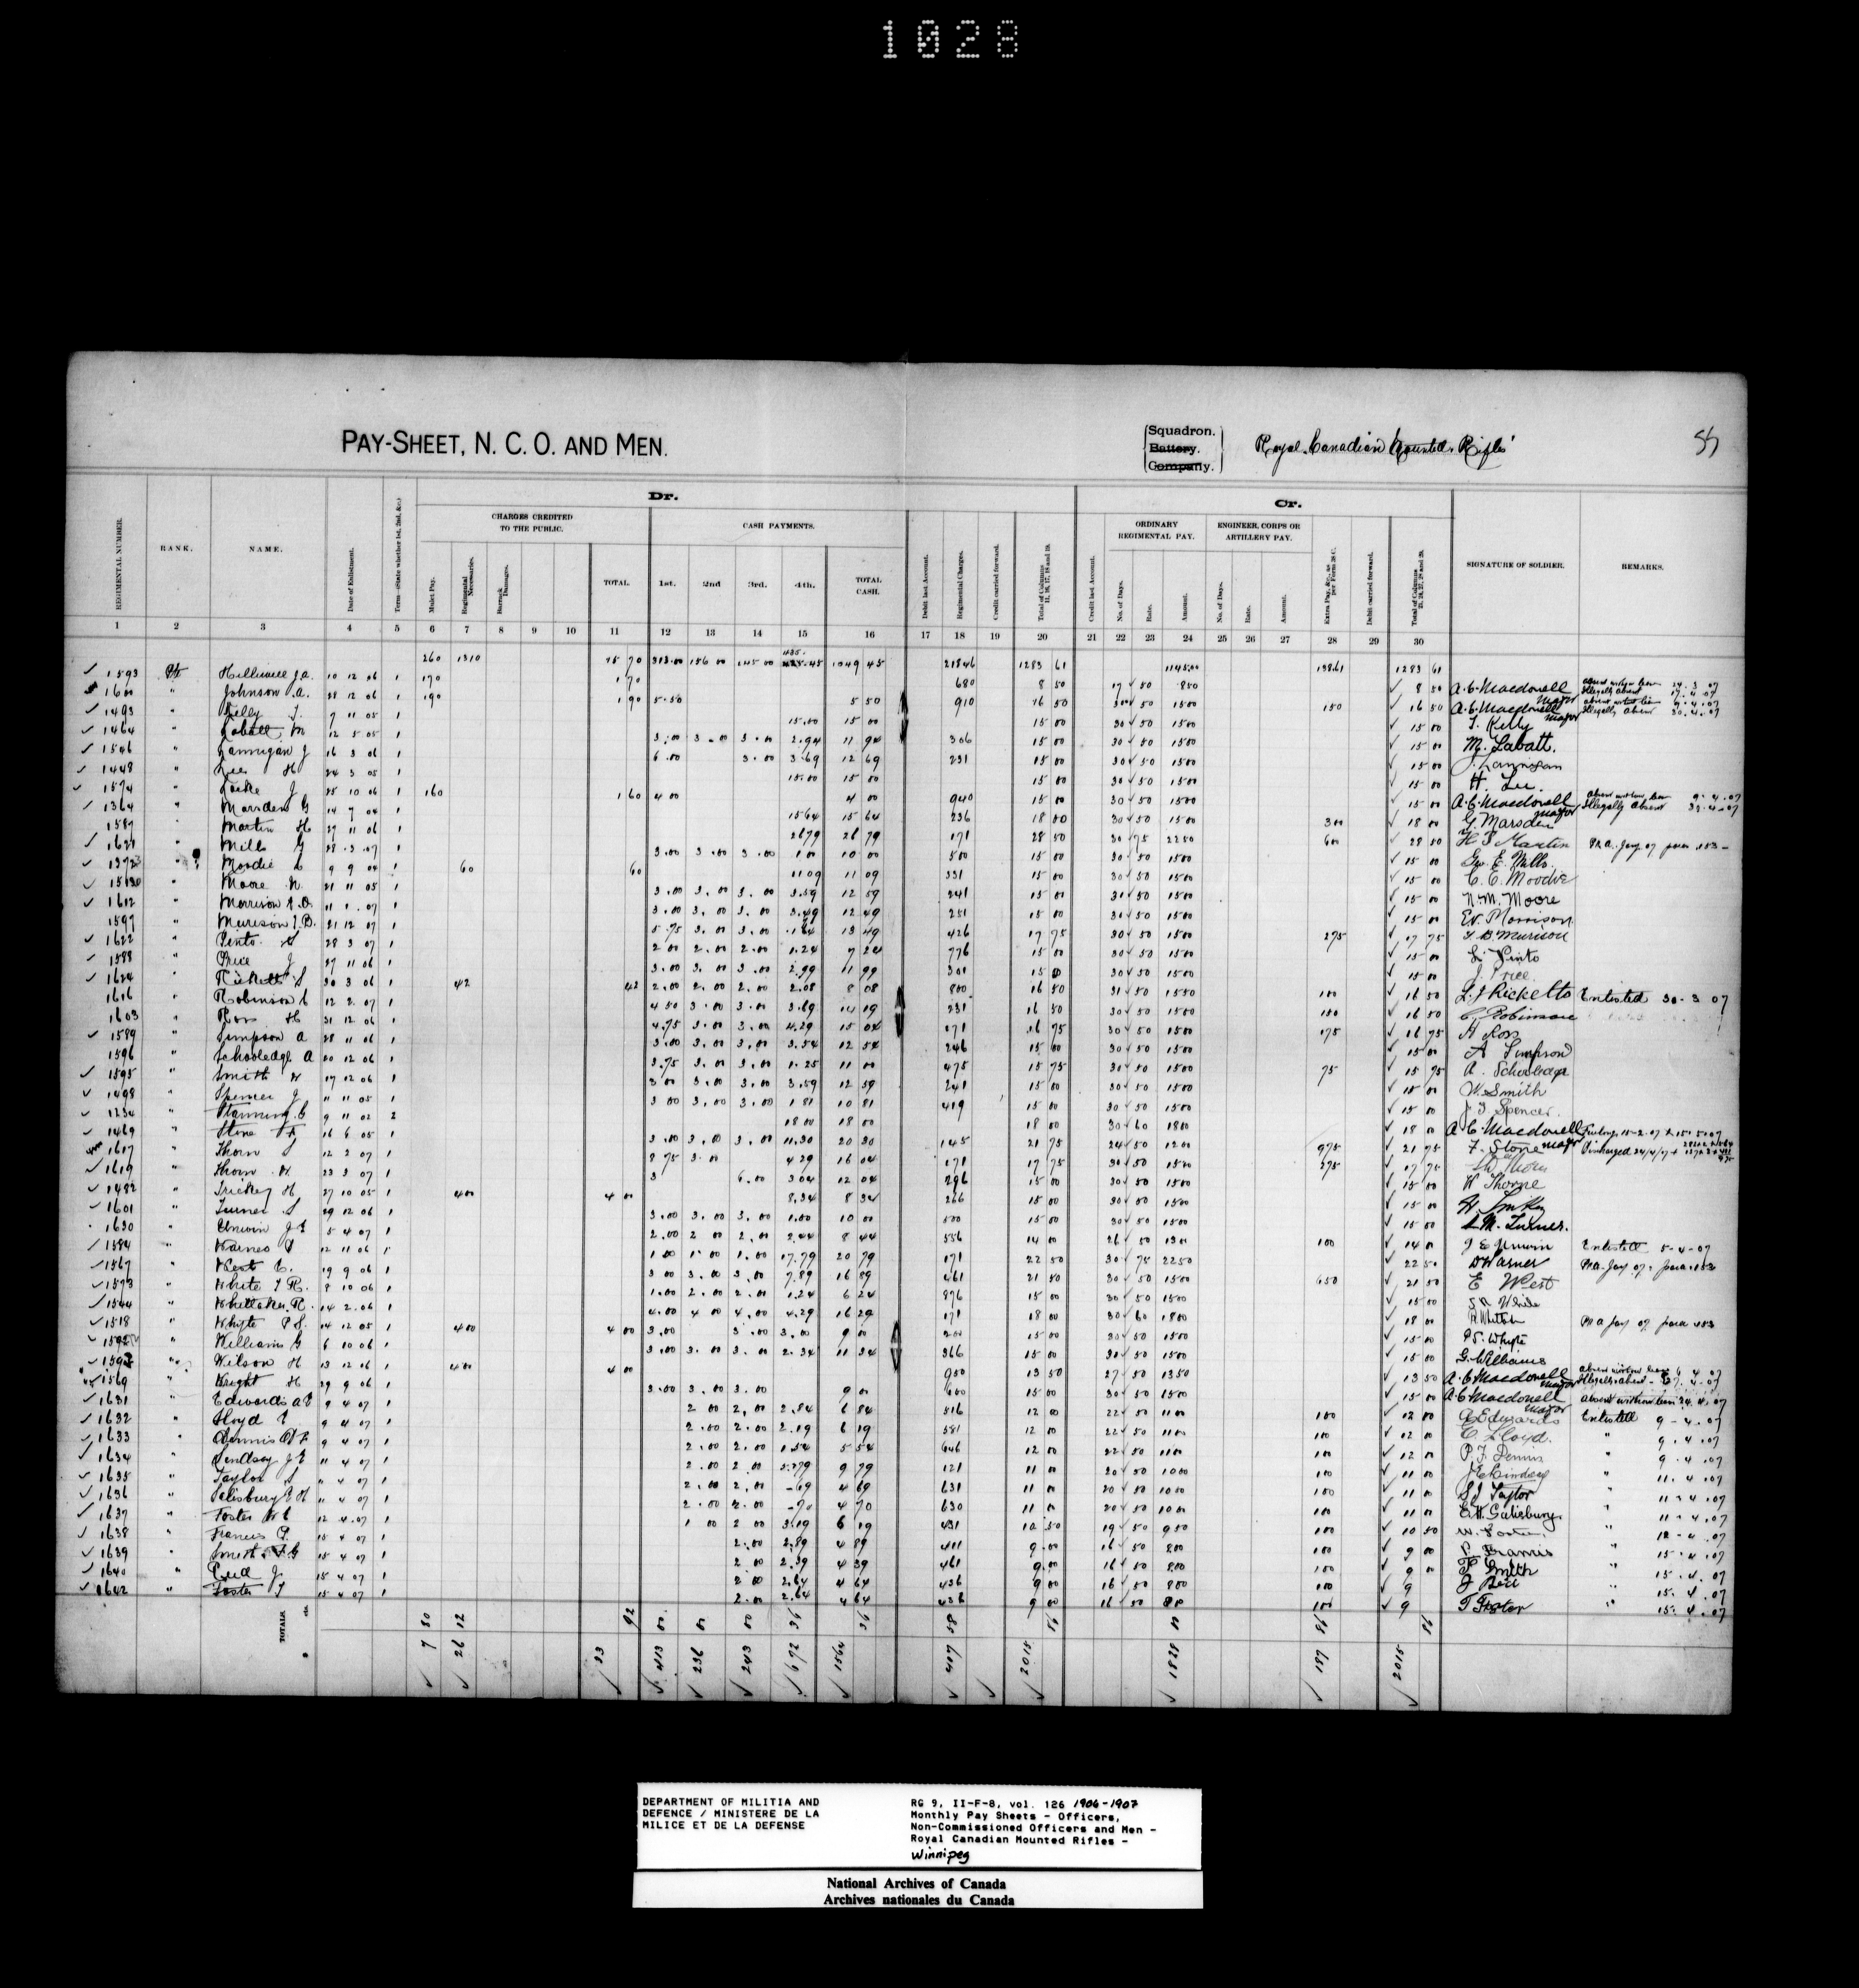 1028
PAY-SHEET, N. C. O. AND MEN.
Squadron.
Battery.
Company.
Royal Canadian Mounted Rifles
Dr.
Cr.
CHARGES CREDITED TO THE PUBLIC.
CASH PAYMENTS.
ORDINARY REGIMENTAL PAY.
ENGINEER, CORPS OR ARTILLERY PAY.
REGIMENTAL NUMBER. RANK. NAME. Date of Enlistment. Term—State whether 1st, 2nd, &c. Mulct Pay. Regimental Necessaries. Barrack Damages. TOTAL. 1st. 2nd 3rd. 4th. TOTAL CASH. Debit last Account. Regimental Charges. Credit carried forward. Total of Columns 11, 16, 17, 18 and 19. Credit last Account. No. of Days. Rate. Amount. No. of Days. Rate. Amount. Extra Pay, &c., as per Form 28 C. Debit carried forward. Total of Columns 21, 24, 27, 28 and 29. SIGNATURE OF SOLDIER. REMARKS.
1 2 3 4 5 6 7 8 9 10 11 12 13 14 15 16 17 18 19 20 21 22 23 24 25 26 27 28 29 30
260 1310 15 70 313.00 156 00 145 00 1049 45 21846 1283 61 114500 13861 1283 61
1593 Pte Hilliwell J.A. 10 12 06 1 170 1 70 680 8 50 17 50 850 8 50 A.C. Macdonell Major
1600 " Johnson A. 28 12 06 1 190 1 90 5.50 5 50 910 16 50 30 50 1500 150 16 50 A.C. Macdonell Major
1493 " Kelly T. 7 11 05 1 15.00 15 00 15 00 30 50 1500 15 00 T. Kelly
1464 " Labatt M 12 5 05 1 3.00 3.00 3.00 2.94 11 94 306 15 00 30 50 1500 15 00 M. Labatt.
1546 " Lannigan J 16 3 06 1 6.00 3.00 3.69 12 69 231 15 00 30 50 1500 15 00 J. Lannigan
1448 " Lee H 24 3 05 1 15.00 15 00 15 00 30 50 1500 15 00 H. Lee.
1574 " Locke J 25 10 06 1 160 1 60 4 00 4 00 940 15 00 30 50 1500 15 00 A.C. Macdonell Major
1364 " Marsden G 14 7 04 1 1564 15 64 236 18 00 30 50 1500 300 18 00 G. Marsden
1587 " Martin H 27 11 06 1 2679 26 79 171 28 50 30 75 2250 600 28 50 H Martin
1621 " Mills G 28 3 07 1 3.00 3.00 3.00 1 00 10 00 500 15 00 30 50 1500 15 00 Geo. E. Mills.
" Moodie C 9 9 04 1 60 60 1109 11 09 331 15 00 30 50 1500 15 00 C. E. Moodie
" Moore N. 21 11 05 1 3.00 3.00 3.00 3.59 12 59 241 15 00 30 50 1500 15 00 N.M. Moore
1612 " Morrison 11 1 07 1 3.00 3.00 3.00 3.49 12 49 251 15 00 30 50 1500 15 00 Morrison
1597 " Murison J.B. 21 12 07 1 5.75 3.00 3.00 13 49 426 17 75 30 50 1500 275 17 75 Murison
1622 " Pinto S 28 3 07 1 2 00 2.00 2.00 1.24 7 24 776 15 00 30 50 1500 15 00 Pinto
1588 " Price J 27 11 06 1 3.00 3.00 3.00 2.99 11 99 301 15 00 30 50 1500 15 00 J. Price
1624 " Ricketts S 30 3 06 1 42 42 2.00 2.00 2.00 2.08 8 08 800 16 50 31 50 1550 100 16 50 Ricketts Enlisted 30-3 07
1616 " Robinson C 12 2 07 1 4 50 3.00 3.00 3.69 14 19 231 16 50 30 50 1500 150 16 50 C. Robinson
1603 " Ross H 31 12 06 1 4.75 3.00 3.00 4.29 15 04 171 16 75 30 50 1500 175 16 75 H Ross
1589 " Simpson A 28 11 06 1 3.00 3.00 3.00 3.54 12 54 246 15 00 30 50 1500 15 00 A Simpson
1596 " Schooledge A 20 12 06 1 3.75 3.00 3.00 1.25 11 00 475 15 75 30 50 1500 75 15 75 A. Schooledge
1595 " Smith W 17 12 06 1 3 00 3.00 3.00 3.59 12 59 241 15 00 30 50 1500 15 00 W. Smith
1498 " Spencer J " 11 05 1 3 00 3.00 3.00 1 81 10 81 419 15 00 30 50 1500 15 00 Spencer.
1234 " Stanning C 9 11 02 2 18 00 18 00 18 00 30 60 1800 18 00 A C Macdonell Major
1469 " Stone F 16 6 05 1 3.00 3.00 3.00 11.30 20 30 145 21 75 24 50 1200 975 21 75 F. Stone Discharged 24/4/7
1617 " Thorn S 12 2 07 1 8 75 3.00 4 29 16 04 171 17 75 30 50 1500 275 17 75
1619 " Thorn W. 23 3 07 1 3 6.00 3 04 12 04 296 15 00 30 50 1500 15 00 W Thorne
1482 " Trickey H 27 10 05 1 400 4 00 8.34 8 34 266 15 00 30 50 1500 15 00
1601 " Turner S 29 12 06 1 3.00 3.00 3.00 1.00 10 00 500 15 00 30 50 1500 15 00 S.M. Turner.
1630 " Unwin J E 5 4 07 1 2.00 2 00 2.00 2.44 8 44 556 14 00 26 50 1300 100 14 00 J E Unwin Enlisted 5-4-07
1584 " Warner D 12 11 06 1 1 00 1 00 1.00 17.79 20 79 171 22 50 30 75 2250 22 50 D Warner
1567 " West E. 19 9 06 1 3 00 3.00 3.00 7.89 16 89 461 21 50 30 50 1500 650 21 50 E West
1573 " White T R. 8 10 06 1 1.00 2.00 2.00 1.24 6 24 876 15 00 30 50 1500 15 00 White
1544 " Whittaker R. 14 2 06 1 4.00 4 00 4.00 4.29 16 29 171 18 00 30 60 1800 18 00
1518 " Whyte P S. 14 12 05 1 400 4 00 3.00 3.00 3.00 9 00 200 15 00 30 50 1500 15 00 P.S. Whyte
" Williams G 6 10 06 1 3.00 3.00 3.00 2.34 11 34 366 15 00 30 50 1500 15 00 G. Williams
" Wilson H 13 12 06 1 400 4 00 950 13 50 27 50 1350 13 50 A C Macdonell Major
1569 " Wright H 29 9 06 1 3.00 3.00 3.00 9 00 600 15 00 30 50 1500 15 00 A C Macdonell Major
1631 " Edwards A E 9 4 07 1 2 00 2.00 2.84 6 84 516 12 00 22 50 1100 100 12 00 Edwards Enlisted 9-4.07
1632 " Lloyd E 9 4 07 1 2.00 2.00 2.19 6 19 581 12 00 22 50 1100 100 12 00 E. Lloyd. " 9.4.07
1633 " Dennis P F 9 4 07 1 2.00 2.00 1.54 5 54 646 12 00 22 50 1100 100 12 00 P.F. Dennis " 9.4.07
1634 " Lindsay J E 11 4 07 1 2.00 2.00 5.79 9 79 121 11 00 20 50 1000 100 11 00 J E Lindsay " 11.4.07
1635 " Taylor S " 4 07 1 2.00 2.00 -69 4 69 631 11 00 20 50 1000 100 11 00 S J Taylor " 11.4.07
1636 " Salisbury E H " 4 07 1 2.00 2.00 -70 4 70 630 11 00 20 50 1000 100 11 00 E.H. Salisbury " 11.4.07
1637 " Foster W E 12 4.07 1 1 00 2 00 3.19 6 19 431 10 50 19 50 950 100 10 50 W. Foster. " 12-4.07
1638 " Francis P. 15 4 07 1 2.00 2.89 4 89 411 9.00 16 50 800 100 9 00 P. Francis " 15.4.07
1639 " Smith F G 15 4 07 1 2 00 2.39 4 39 461 9.00 16 50 800 100 9 00 F. Smith " 15.4.07
1640 " Bell J 15 4 07 1 2 00 2.64 4 64 436 9 00 16 50 800 100 9 J Bell " 15.4.07
1642 " Foster T 15 4 07 1 2.00 2.64 4 64 436 9 00 16 50 800 100 9 T Foster " 15.4.07
TOTALS
7 50 26 12 33 92 413 00 236 00 243 00 672 36 1564 36 407 58 2015 86 1828 00 187 86 2015 86
DEPARTMENT OF MILITIA AND
DEFENCE / MINISTERE DE LA
MILICE ET DE LA DEFENSE
RG 9, II-F-8, vol. 126 1906-1907
Monthly Pay Sheets - Officers,
Non-Commissioned Officers and Men -
Royal Canadian Mounted Rifles -
Winnipeg
National Archives of Canada
Archives nationales du Canada